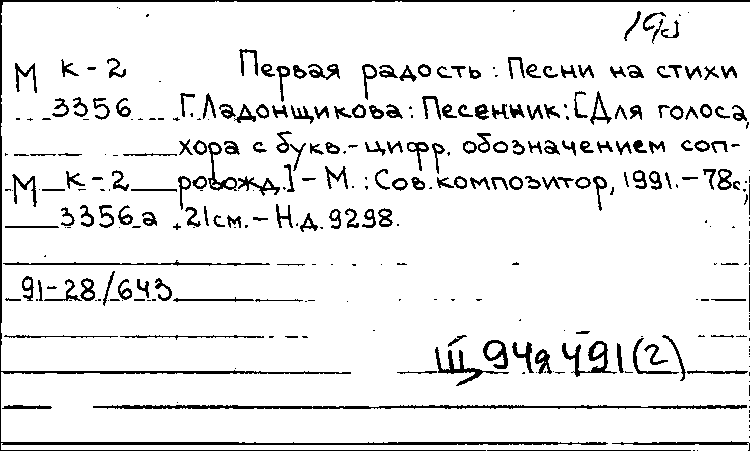 М к-2 Первая радость: Песни на стихи
3356 Г. Ладонщикова: Песенник: [Для голоса,
хора с букв.-цифр. обозначением соп-
М к-2 ровожд.] – М.: Сов. композитор, 1991. – 78с;
3356а 21см. – Н.д. 9298.
91-28/643
Ш94я 491(2)